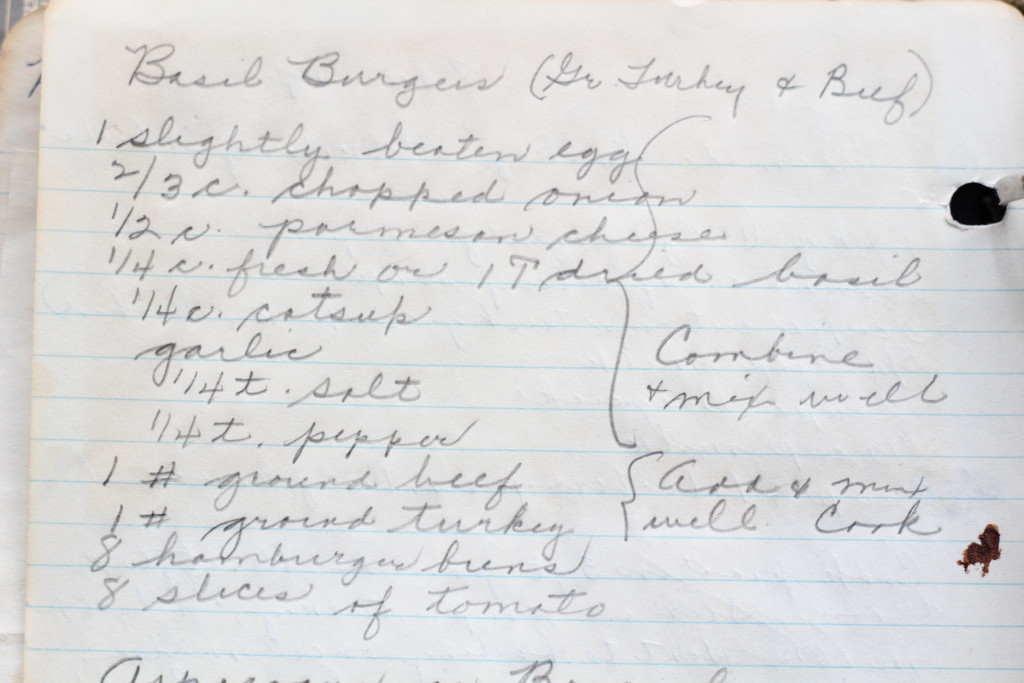 Basil Burgers (Gr. Turkey & Beef)
1 slightly beaten egg
2/3 c. chopped onion
1/2 c. parmesan cheese
1/4 c. fresh or 1 T dried basil
1/4 c. catsup
garlic
1/4 t. salt
1/4 t. pepper
Combine
+ mix well
1 # ground beef
1 # ground turkey
Add & mix
well. Cook
8 hamburger buns
8 slices of tomato